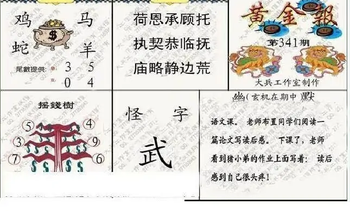 鸡 马
蛇 羊
尾數提供：3 5
0 4
荷恩承顾托
执契恭临抚
庙略静边荒
黄金報
第341期
大兵工作室制作
摇錢樹
⑤ ④
⑦ ⑨
① ⑥
怪字
武
幽(玄机在期中)默
语文课。老师布置同学们阅读一
篇论文写读后感。下课了，老师
看到猪小弟的作业上面写着：读后
感到自己很失疼！